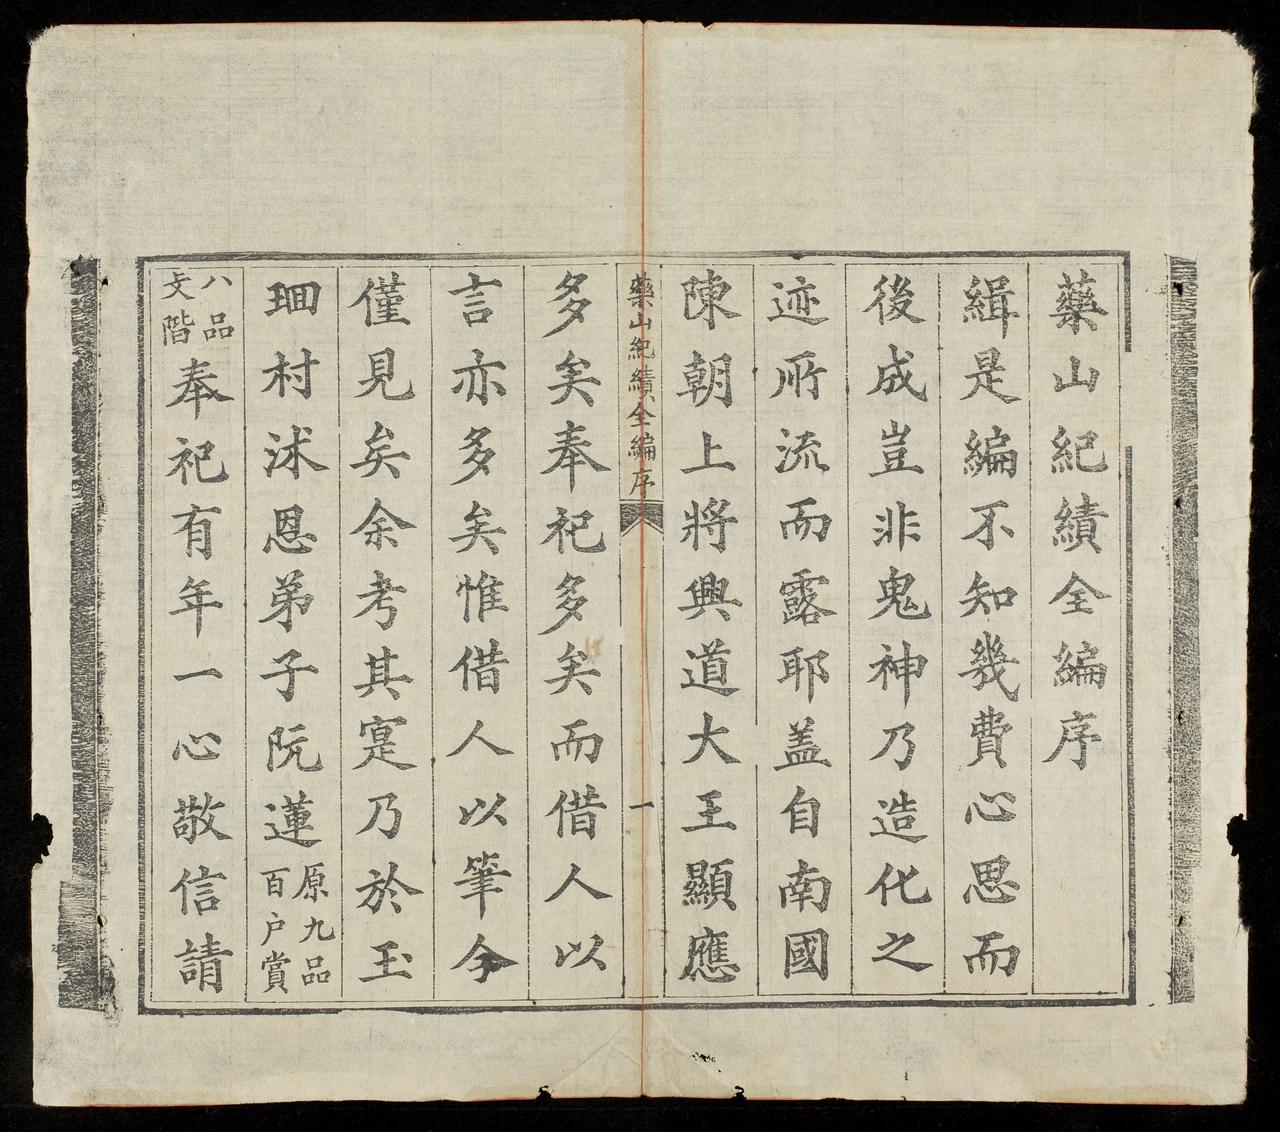 藥山紀績全編序
緝是編不知幾費心思而
後成豈非鬼神乃造化之
迹所流而露耶盖自南國
陳朝上將興道大王顯應
藥山紀績全編序
一
多矣奉祀多矣而借人以
言亦多矣惟借人以筆今
僅見矣余考其寔乃於玉
村沭恩弟子阮蓮原九品百户賞
八品文階奉祀有年一心敬信請